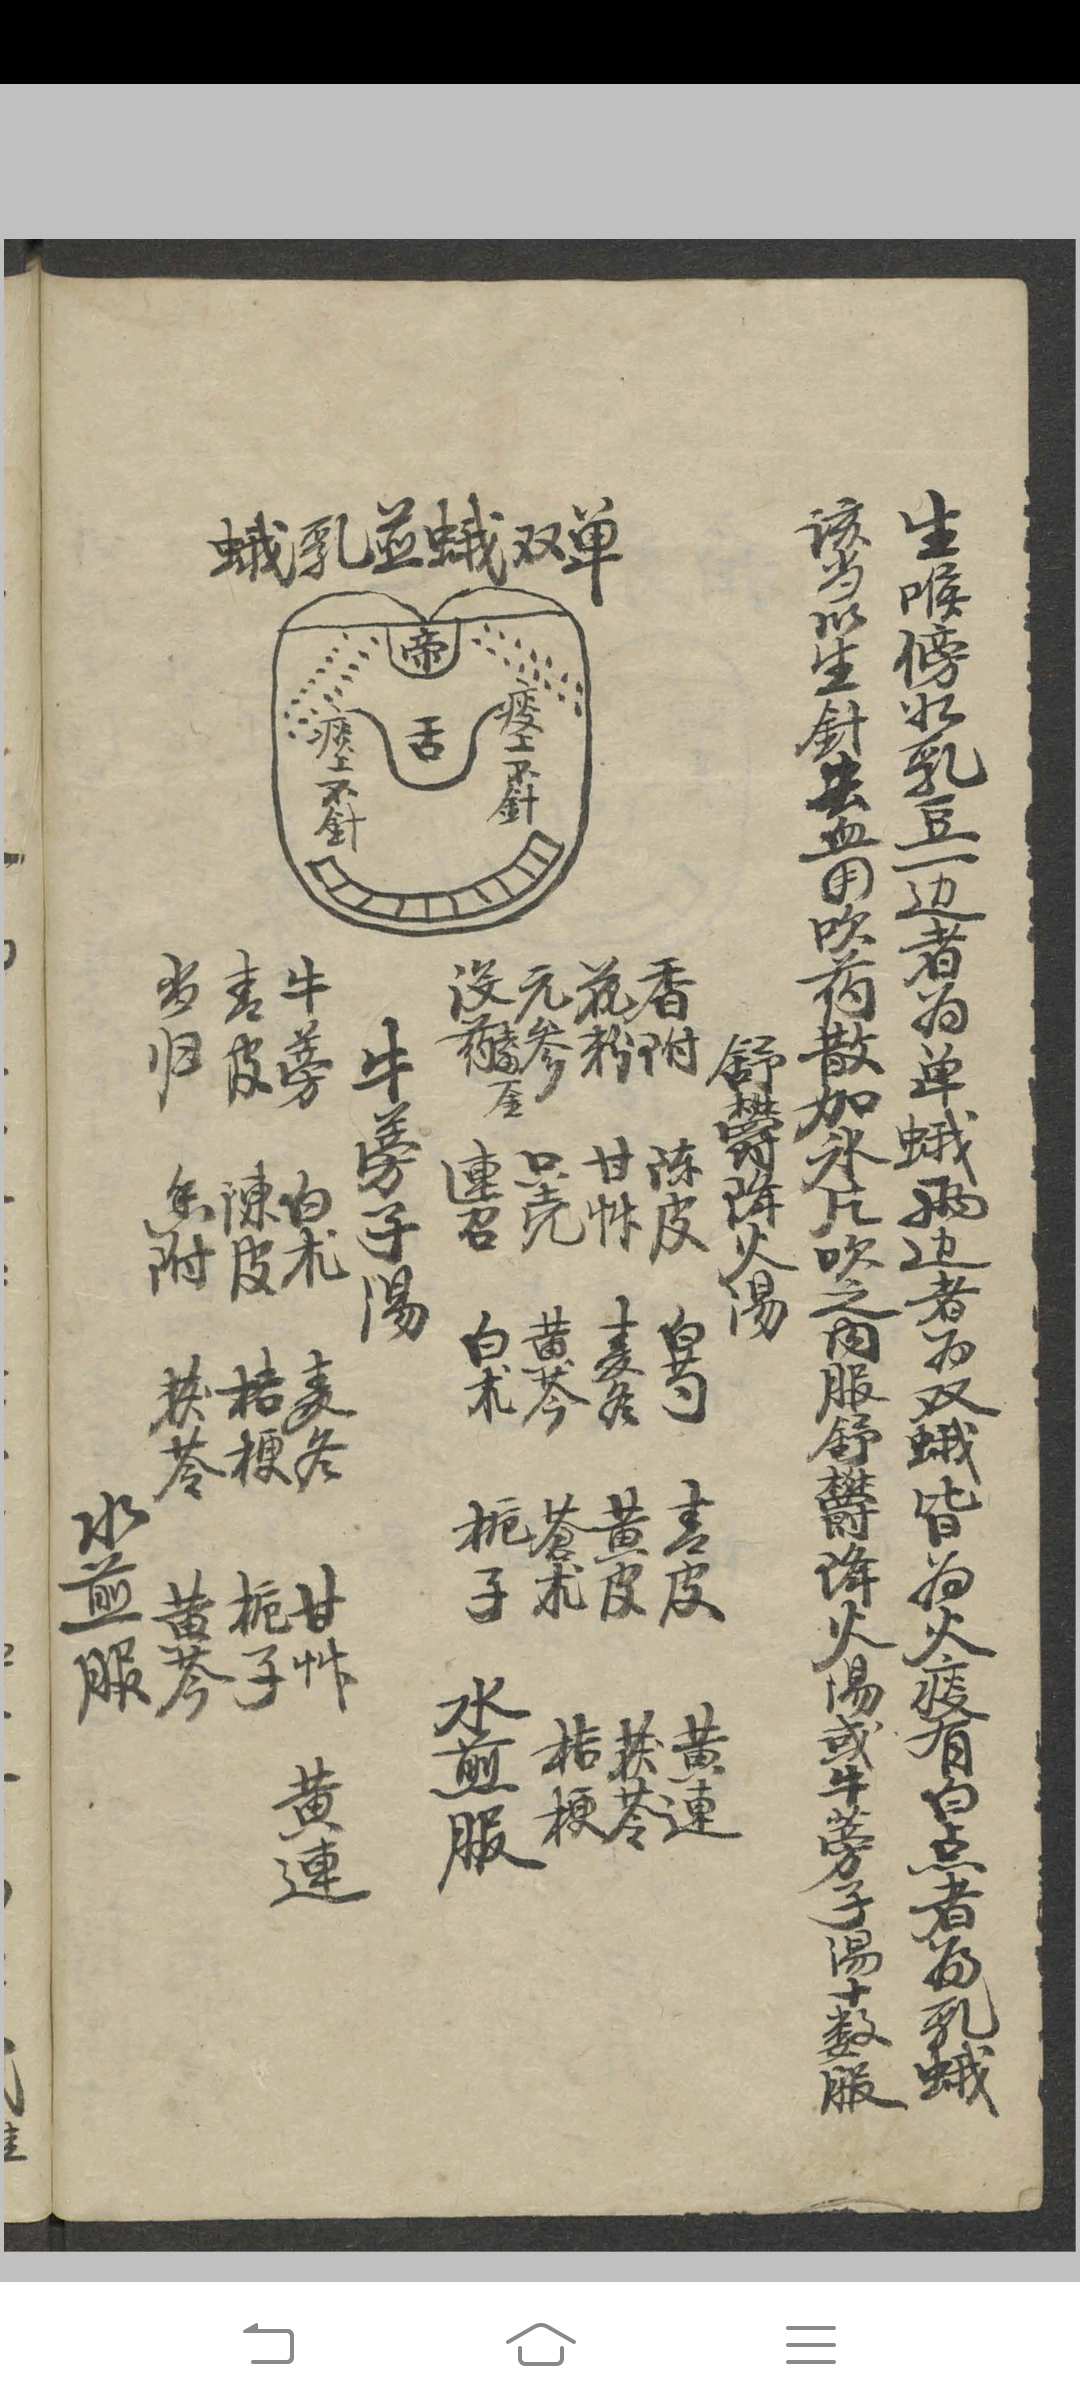 生喉傍如乳豆一边者为单蛾两边者为双蛾皆为火痰有白点者为乳蛾
该当以生針去血用吹药散加氷片吹之内服舒欝降火湯或牛蒡子湯十数服
单双蛾並乳蛾
帝
舌
痰上不針
痰上不針
舒欝降火湯
香附 陈皮 白芍 青皮 黄連
花粉 甘艸 麦冬 黄皮 茯苓
元参 只壳 黄芩 蒼术 桔梗
没药 連召 白术 栀子 水煎服
牛蒡子湯
牛蒡 白术 麦冬 甘艸 黄連
青皮 陳皮 桔梗 栀子
当归 香附 茯苓 黄芩
水煎服